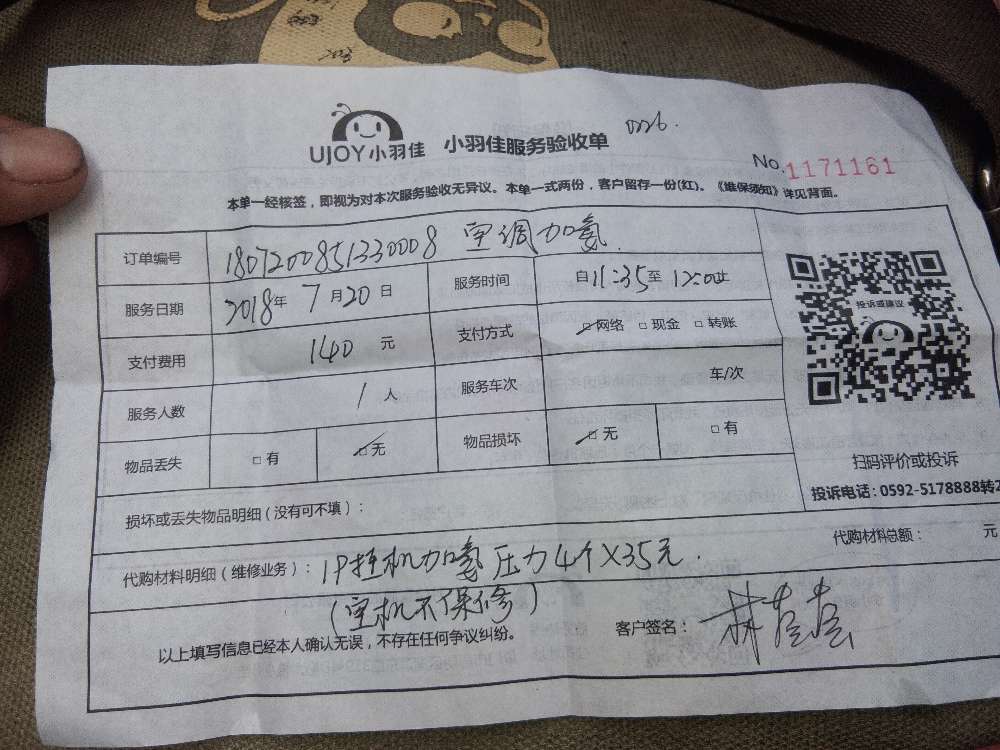 UJOY小羽佳 小羽佳服务验收单 0226.
No. 1171161
本单一经核签，即视为对本次服务验收无异议。本单一式两份，客户留存一份(红)。《维保须知》详见背面。
订单编号 1807200851330008 空调加氨.
服务日期 2018年 7月20日 服务时间 自11:35至12:00止
支付费用 140 元 支付方式 □网络 □现金 □转账
服务人数 1 人 服务车次 车/次
物品丢失 □有 □无 物品损坏 □无 □有
投诉或建议
扫码评价或投诉
投诉电话：0592-5178888转2
损坏或丢失物品明细（没有可不填）：
代购材料总额： 元
代购材料明细（维修业务）：1P挂机加氨压力4个X35元.
(空机不保修)
以上填写信息已经本人确认无误，不存在任何争议纠纷。
客户签名：